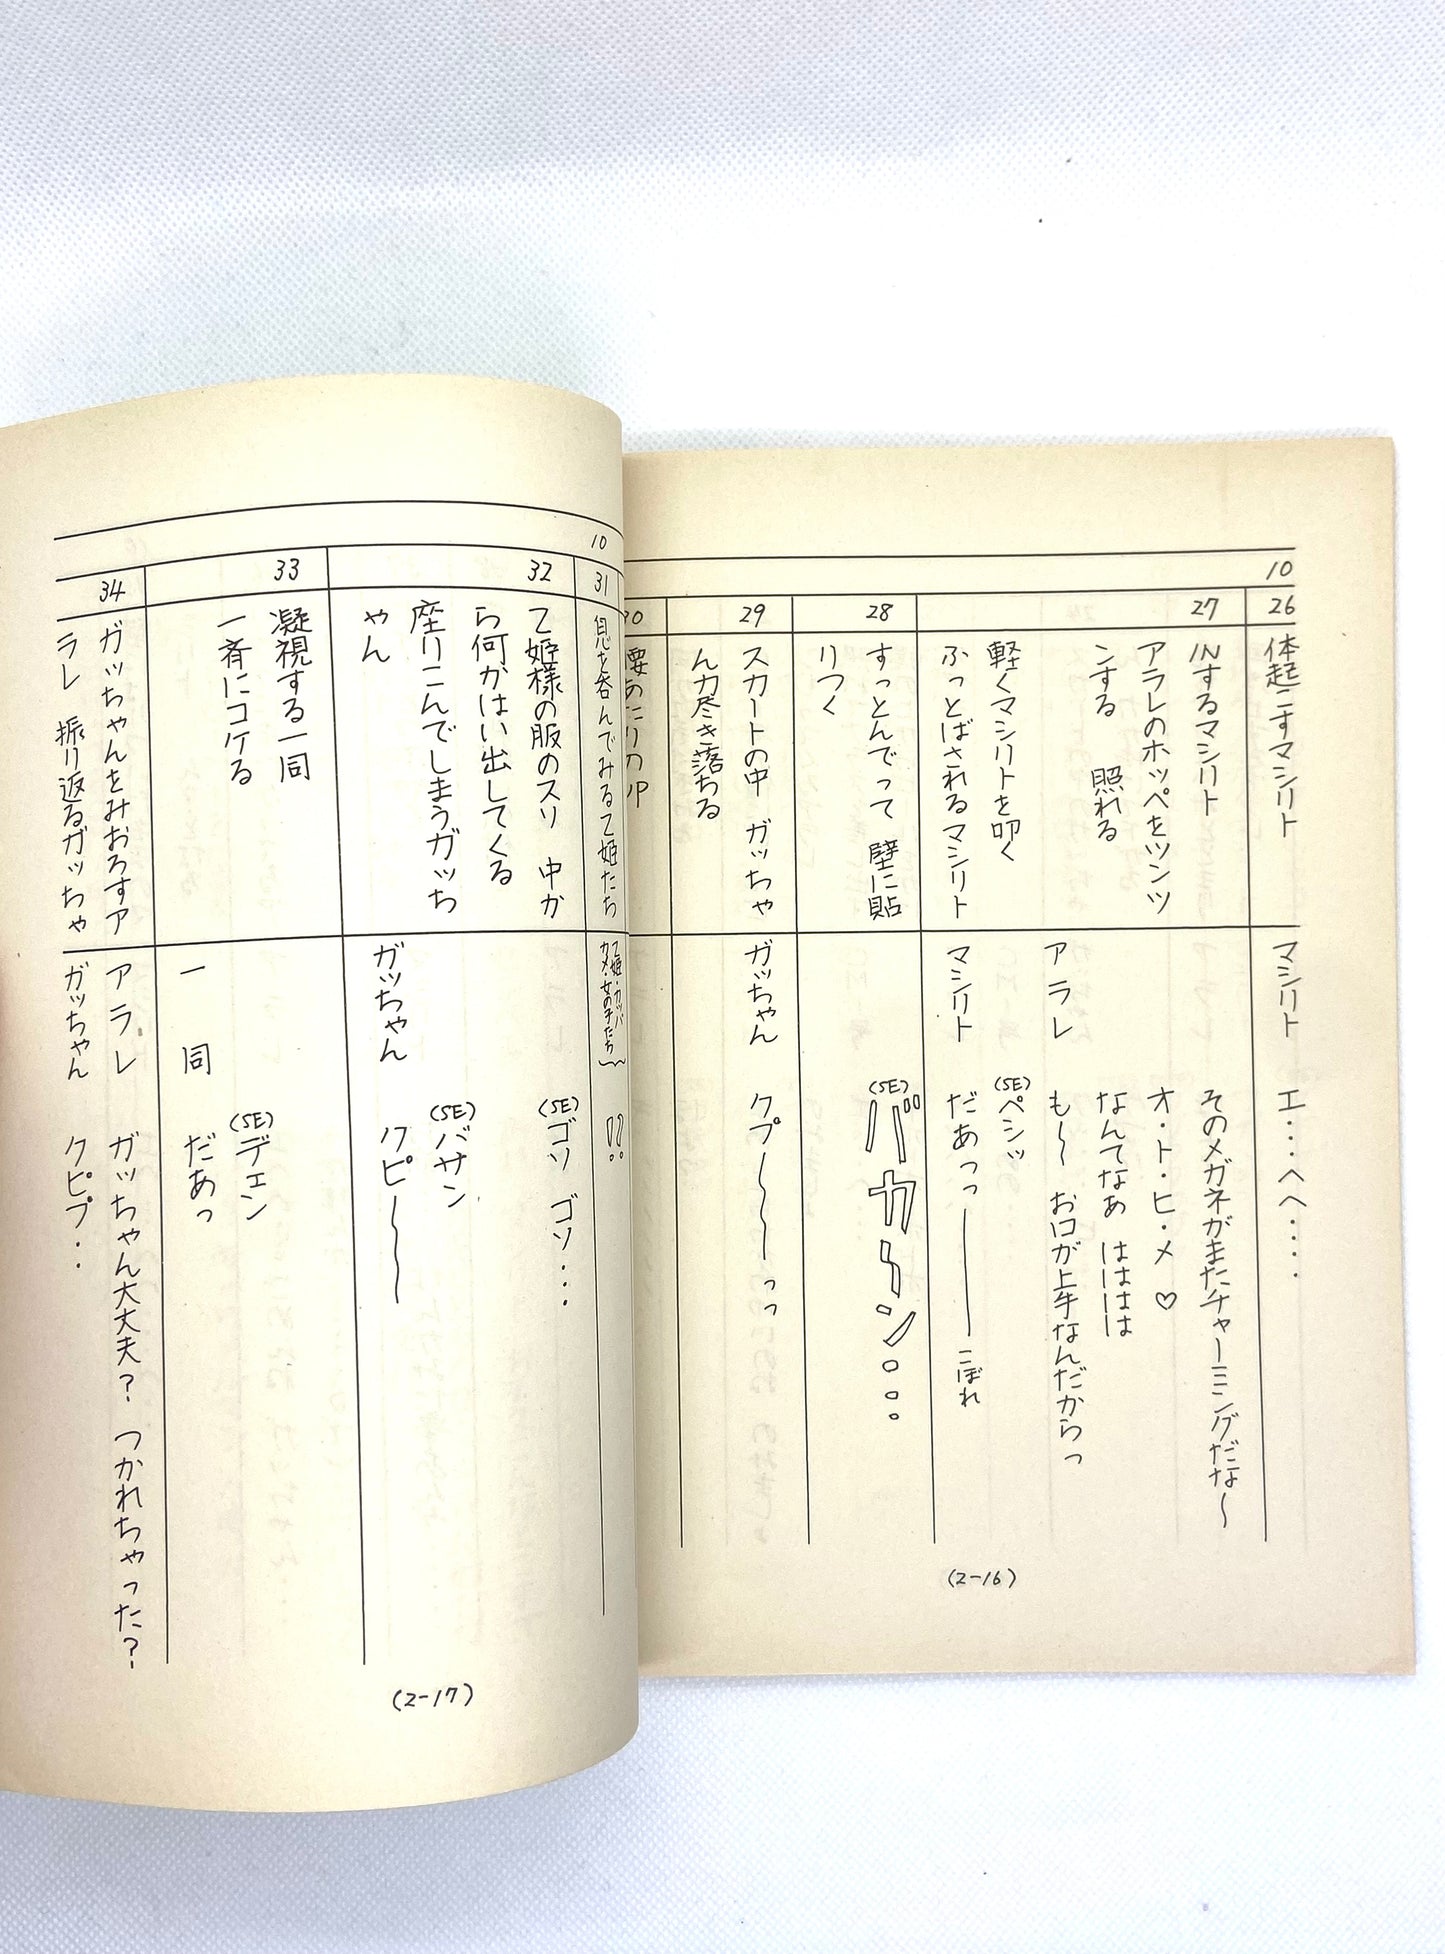 10
26
体起こすマシリト
マシリト　エ・・・へへ・・・・
27
INするマシリト
アラレのホッペをツンツ
ンする　照れる
そのメガネがまたチャーミングだな〜
オ・ト・ヒ・メ♡
なんてなあ　はははは
アラレ　も〜　お口が上手なんだからっ
軽くマシリトを叩く
(SE)ペシッ
ふっとばされるマシリト
マシリト　だあっっ――――こぼれ
28
すっとんでって　壁に貼
りつく
(SE)バカーン。。。
29
スカートの中　ガッちゃ
ん力尽き落ちる
ガッちゃん　クプ〜〜〜っっ
30
腰あたりのUP
(2-16)
10
31
息を呑んでみる乙姫たち
乙姫・カッパ
カメ・女の子たち
??
32
乙姫様の服のスリ　中か
ら何かはい出してくる
(SE)ゴソ　ゴソ・・・
座りこんでしまうガッち
ゃん
(SE)バサン
ガッちゃん　クピ〜〜〜
33
凝視する一同
一斉にコケる
(SE)デェン
一同　だあっ
34
ガッちゃんをみおろすア
ラレ　振り返るガッちゃ
アラレ　ガッちゃん大丈夫？　つかれちゃった？
ガッちゃん　クピプ・・
(2-17)